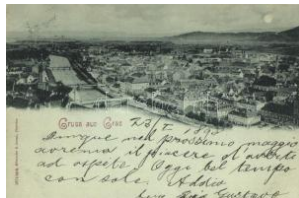 Gruss aus Graz
23/I 1898
Dunque nel prossimo maggio
avremo il piacere d'averti
ad ospite. Oggi bel tempo
con sole. Addio
tuo Gustavo